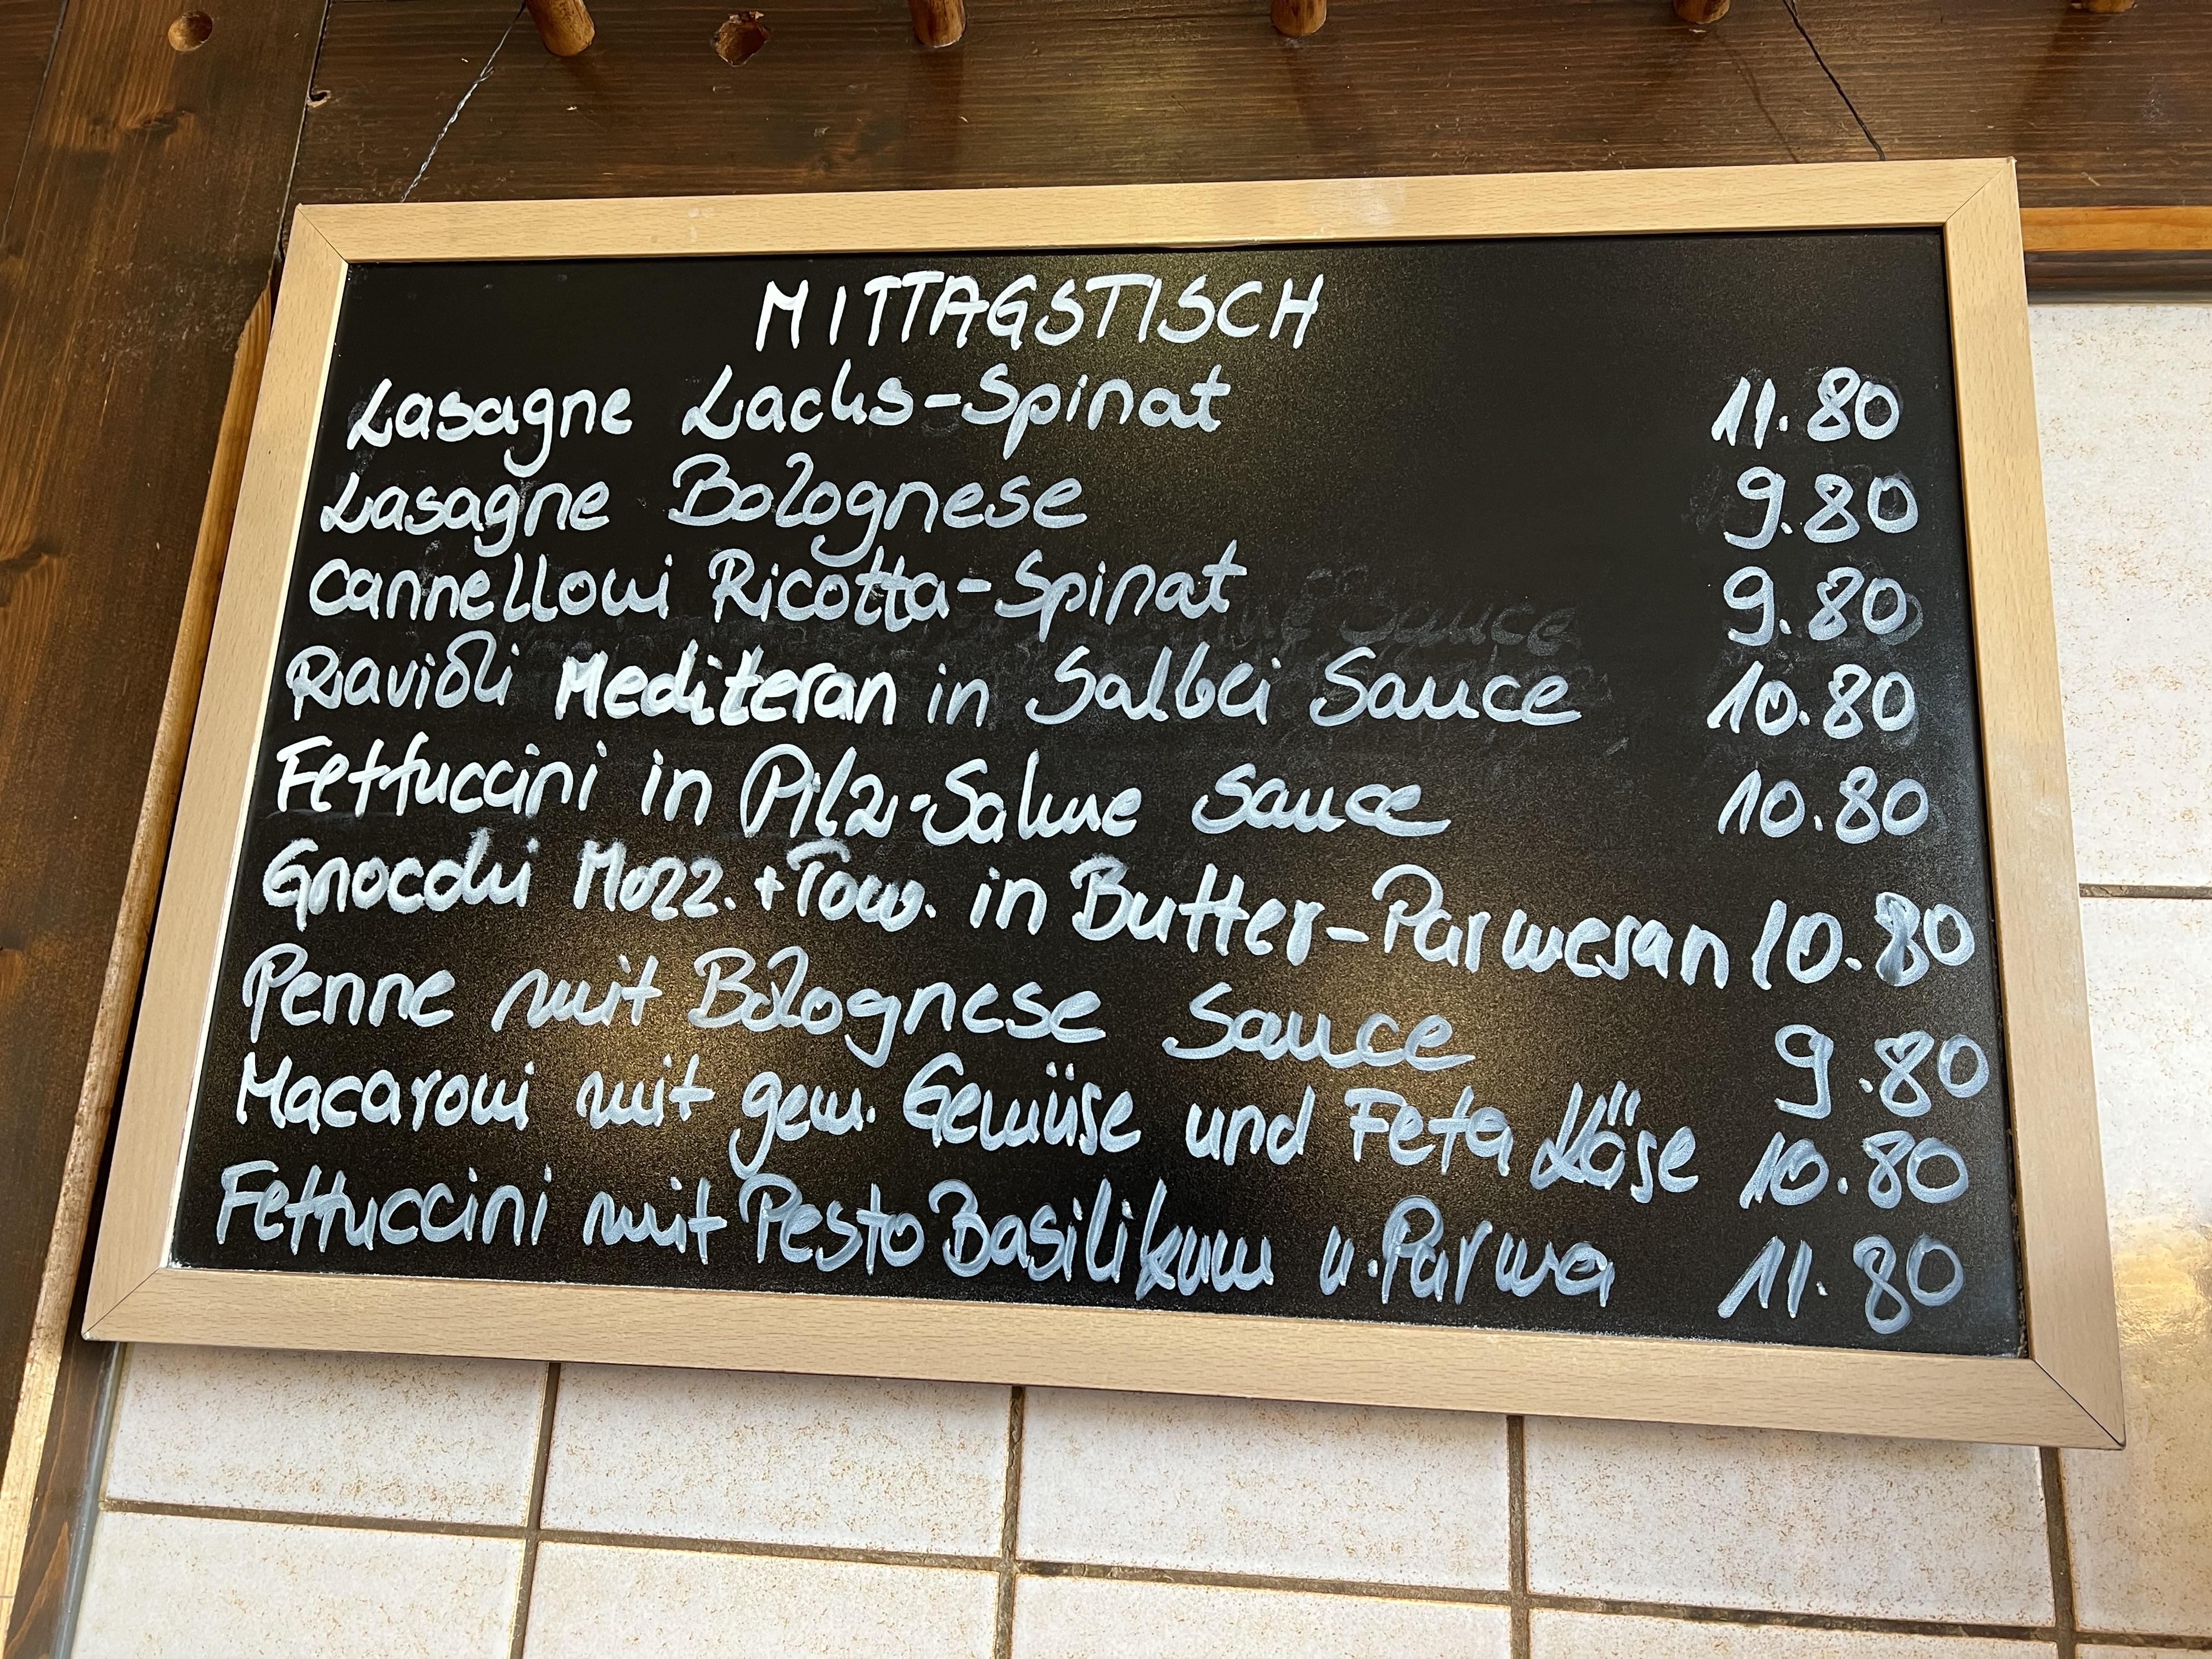 MITTAGSTISCH
Lasagne Lachs-Spinat 11.80
Lasagne Bolognese 9.80
Cannelloni Ricotta-Spinat 9.80
Ravioli Mediteran in Salbei Sauce 10.80
Fettuccini in Pilz-Sahne Sauce 10.80
Gnocchi Mozz.+Tom. in Butter-Parmesan 10.80
Penne mit Bolognese Sauce 9.80
Macaroni mit gem. Gemüse und Feta Käse 10.80
Fettuccini mit Pesto Basilikum u. Parma 11.80